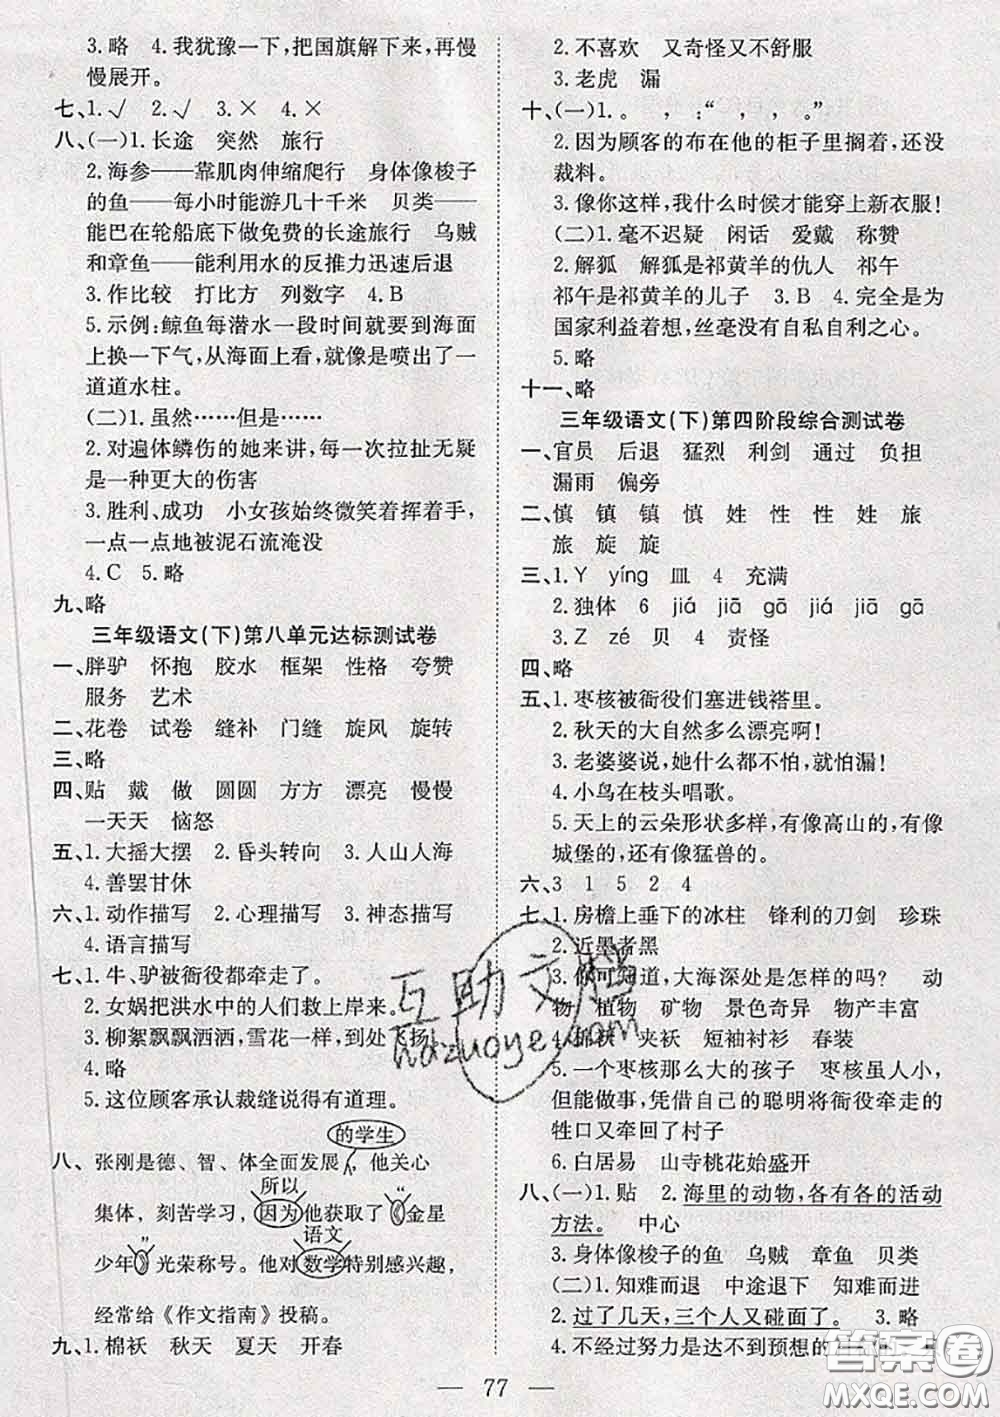 3.略　4.我犹豫一下,把国旗解下来,再慢
慢展开。
七、1.√　2.√　3.×　4.×
八、(一)1.长途　突然　旅行
2.海参——靠肌肉伸缩爬行　身体像梭子
的鱼——每小时能游几十千米　贝类——
能巴在轮船底下做免费的长途旅行　乌贼
和章鱼——能利用水的反推力迅速后退
3.作比较　打比方　列数字　4.B
5.示例:鲸鱼每潜水一段时间就要到海面
上换一下气,从海面上看,就像是喷出了一
道道水柱。
(二)1.虽然……但是……
2.对遍体鳞伤的她来讲,每一次拉扯无疑
是一种更大的伤害
3.胜利、成功　小女孩始终微笑着挥着手,
一点一点地被泥石流淹没
4.C　5.略
九、略
三年级语文(下)第八单元达标测试卷
一、胖驴　怀抱　胶水　框架　性格　夸赞
服务　艺术
二、花卷　试卷　缝补　门缝　旋风　旋转
三、略
四、贴　戴　做　圆圆　方方　漂亮　慢慢
一天天　恼怒
五、1.大摇大摆　2.昏头转向　3.人山人海
4.善罢甘休
六、1.动作描写　2.心理描写　3.神态描写
4.语言描写
七、1.牛、驴被衙役都牵走了。
2.女娲把洪水中的人们救上岸来。
3.柳絮飘飘洒洒,雪花一样,到处飞扬。
4.略
5.这位顾客承认裁缝说得有道理。
的学生
八、张刚是德、智、体全面发展,他关心
所以
集体,刻苦学习,因为他获取了《金星
语文
少年》光荣称号。他对数学特别感兴趣,
经常给《作文指南》投稿。
九、1.棉袄　秋天　夏天　开春
2.不喜欢　又奇怪又不舒服
3.老虎　漏
十、(一)1.。　,　:“　,　,　。”
2.因为顾客的布在他的柜子里搁着,还没
裁料。
3.像你这样,我什么时候才能穿上新衣服!
(二)1.毫不迟疑　闲话　爱戴　称赞
2.解狐　解狐是祁黄羊的仇人　祁午
祁午是祁黄羊的儿子　3.B　4.完全是为
国家利益着想,丝毫没有自私自利之心。
5.略
十一、略
三年级语文(下)第四阶段综合测试卷
一、官员　后退　猛烈　利剑　通过　负担
漏雨　偏旁
二、慎　镇　镇　慎　姓　性　性　姓　旅
旅　旋　旋
三、1.Y　yíng　皿　4　充满
2.独体　6　jiá　jiā　gā　jiá　jiā　gā
3.Z　zé　贝　4　责怪
四、略
五、1.枣核被衙役们塞进钱褡里。
2.秋天的大自然多么漂亮啊!
3.老婆婆说,她什么都不怕,就怕漏。
4.小鸟在枝头唱歌。
5.天上的云朵形状多样,有像高山的,有像
城堡的,还有像猛兽的。
六、3　1　5　2　4
七、1.房檐上垂下的冰柱　锋利的刀剑　珍珠
2.近墨者黑
3.你可知道,大海深处是怎样的吗?　动
物　植物　矿物　景色奇异　物产丰富
4.棉袄　夹袄　短袖衬衫　春装
5.一个枣核那么大的孩子　枣核虽人小,
但能做事,凭借自己的聪明将衙役牵走的
牲口又牵回了村子
6.白居易　山寺桃花始盛开
八、(一)1.贴　2.海里的动物,各有各的活动
方法。　中心
3.身体像梭子的鱼　乌贼　章鱼　贝类
(二)1.知难而退　中途退下　知难而进
2.过了几天,三个人又碰面了。　3.略
4.不经过努力是达不到预想的
— 77 —
互助文档
hdzuoye.com
答案圈
MXQE.COM